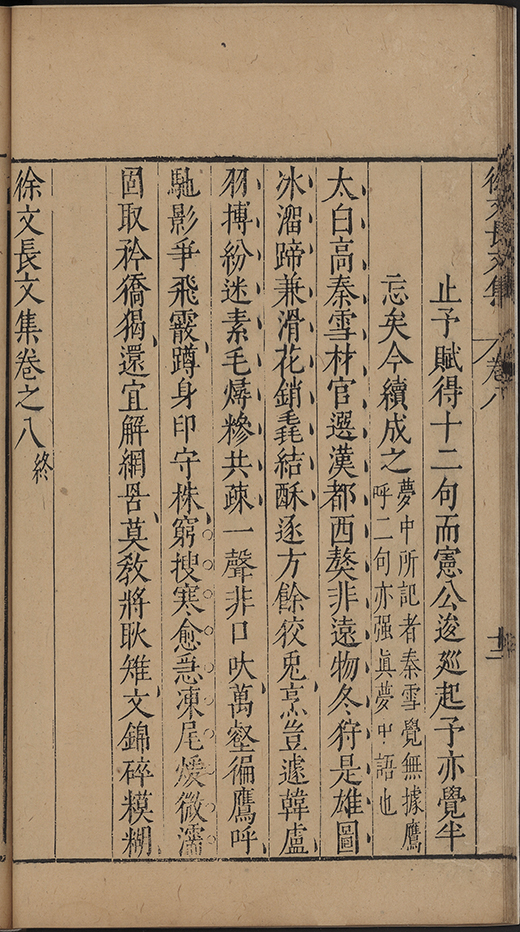 徐文長文集 卷八 十二
止予賦得十二句而憲公逡廵起予亦覺半
忘矣今續成之夢中所記者秦雪覺無據鷹
呼二句亦强眞夢中語也
太白高秦雪材官選漢都西獒非遠物冬狩是雄圖
冰溜蹄兼滑花銷毳結酥逐方餘狡兎烹豈遽韓盧
羽搏紛迷素毛燖糝共疎一聲非口吠萬壑徧鷹呼
馳影爭飛霰蹲身印守株窮搜寒愈急凍尾煖微濡
固取矜獢猲還宜解網罟莫教將耿雉文錦碎糢糊
徐文長文集卷之八終